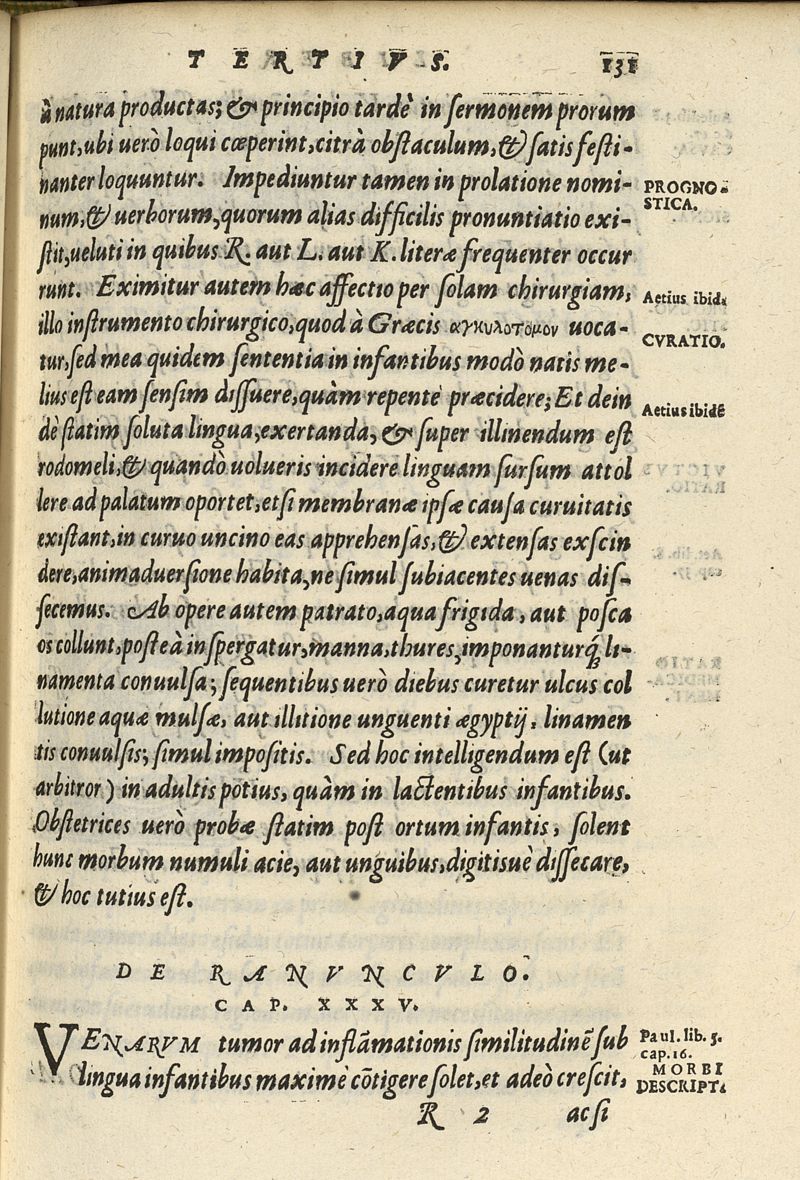 TERTIVS. 131
à natura productas; & principio tardè in sermonem prorum
punt, ubi uerò loqui cœperint, citrà obstaculum, & satis festi-
nanter loquuntur. Impediuntur tamen in prolatione nomi-
PROGNO-
num, & uerborum, quorum alias difficilis pronuntiatio exi-
STICA.
stit, ueluti in quibus R. aut L. aut K. literæ frequenter occur
runt. Eximitur autem hæc affectio per solam chirurgiam,
Aetius ibid.
illo instrumento chirurgico, quod à Græcis αγκυλοτομον uoca-
CVRATIO.
tur, sed mea quidem sententia in infantibus modò natis me-
lius est eam sensim dissuere, quàm repentè præcidere; Et dein
Aetius ibidē
dè statim soluta lingua, exertanda, & super illinendum est
rodomeli, & quandò uolueris incidere linguam sursum attol
lere ad palatum oportet, etsi membranæ ipsæ causa curuitatis
existant, in curuo uncino eas apprehensas, & extensas exscin
dere, animaduersione habita, ne simul subiacentes uenas dis-
secemus. Ab opere autem patrato, aqua frigida, aut posca
os collunt, posteà inspergatur, manna, thures, imponanturq́; li-
namenta conuulsa; sequentibus uerò diebus curetur ulcus col
lutione aquæ mulsæ, aut illitione unguenti ægyptij, linamen
tis conuulsis; simul impositis. Sed hoc intelligendum est (ut
arbitror) in adultis potius, quàm in lactentibus infantibus.
Obstetrices uerò probæ statim post ortum infantis, solent
hunc morbum numuli acie, aut unguibus, digitisuè dissecare,
& hoc tutius est.
DE RANVNCVLO.
CAP. XXXV.
VENARVM tumor ad inflāmationis similitudinē sub
Paul. lib. 3.
cap. 16.
lingua infantibus maximè cōtigere solet, et adeò crescit,
MORBI
DESCRIPT.
R 2 acsi